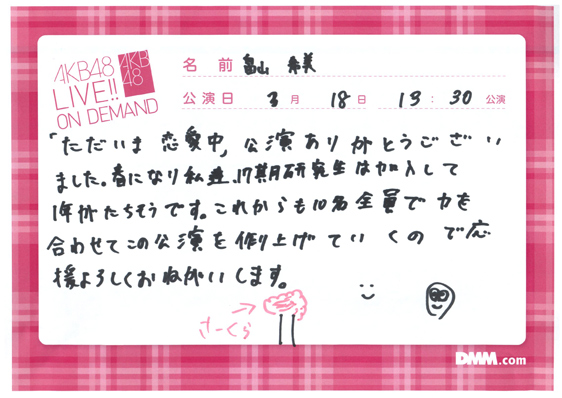 AKB48
LIVE!!
ON DEMAND
AKB
48
名前 畠山 希美
公演日 3月 18日 13:30 公演
「ただいま 恋愛中」公演ありがとうござい
ました。春になり私達、17期研究生は加入して
1年がたちそうです。これからも10名全員で力を
合わせてこの公演を作り上げていくので応
援よろしくおねがいします。
さーくら
DMM.com